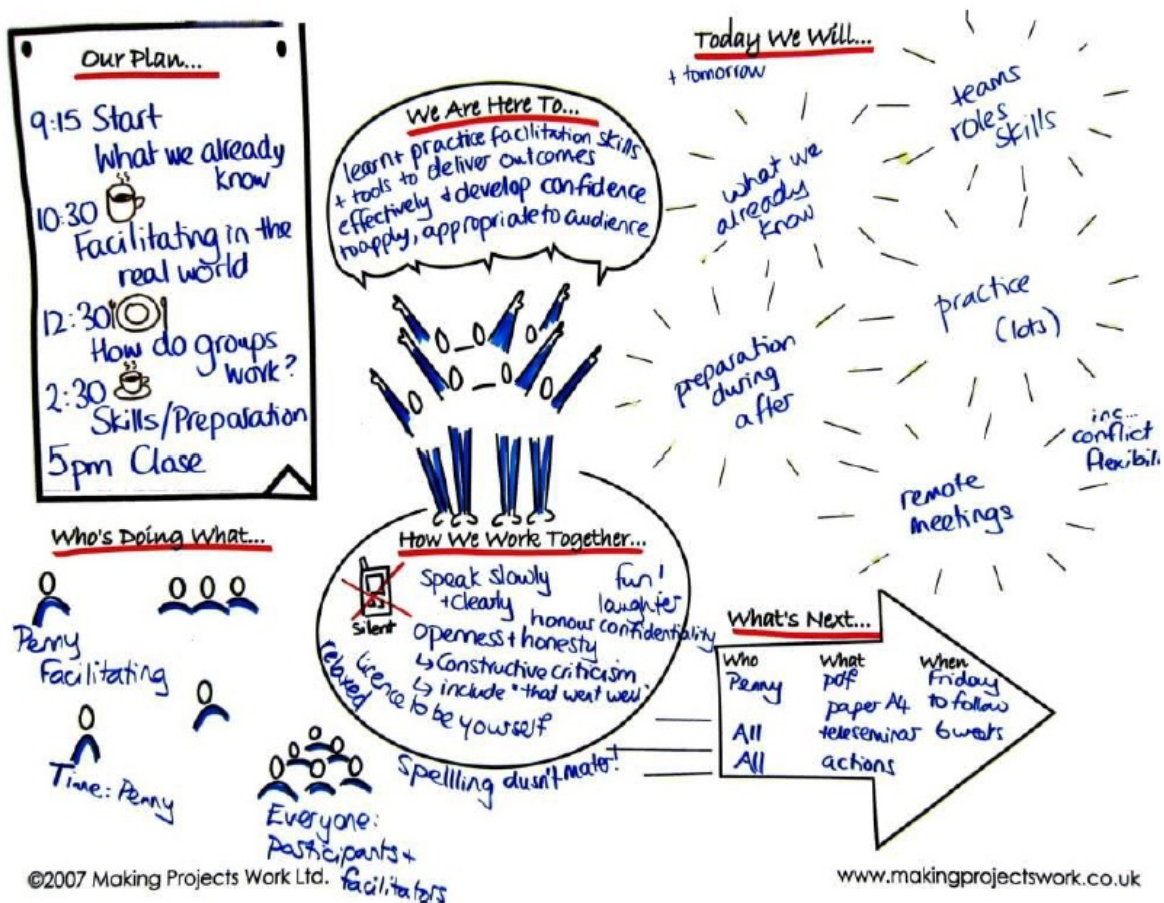 Our Plan...
9:15 Start
What we already
know
10:30
Facilitating in the
real world
12:30
How do groups
work?
2:30
Skills/Preparation
5pm Close
We Are Here To...
learn + practice facilitation skills
+ tools to deliver outcomes
effectively + develop confidence
to apply, appropriate to audience
Today We Will...
+ tomorrow
teams
roles
skills
what we
already
know
practice
(lots)
preparation
during
after
inc...
conflict
flexibili
remote
meetings
Who's Doing What...
Penny
Facilitating
Time: Penny
Everyone:
Participants +
facilitators
How We Work Together...
silent
speak slowly
+ clearly
fun!
laughter
honour confidentiality
openness + honesty
↳ constructive criticism
↳ include "that went well"
relaxed
licence to be yourself
Spellling dusn't mater!
What's Next...
Who What When
Penny pdf Friday
paper A4 to follow
All teleseminar 6 weeks
All actions
©2007 Making Projects Work Ltd.
www.makingprojectswork.co.uk